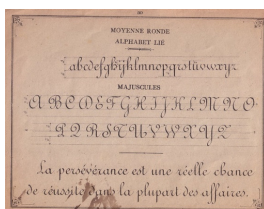 MOYENNE RONDE
ALPHABET LIÉ
abcdefghijklmnopqrstuvwxyz
MAJUSCULES
A B C D E F G H I J K L M N O
P Q R S T U V W X Y Z
La persévérance est une réelle chance
de réussite dans la plupart des affaires.